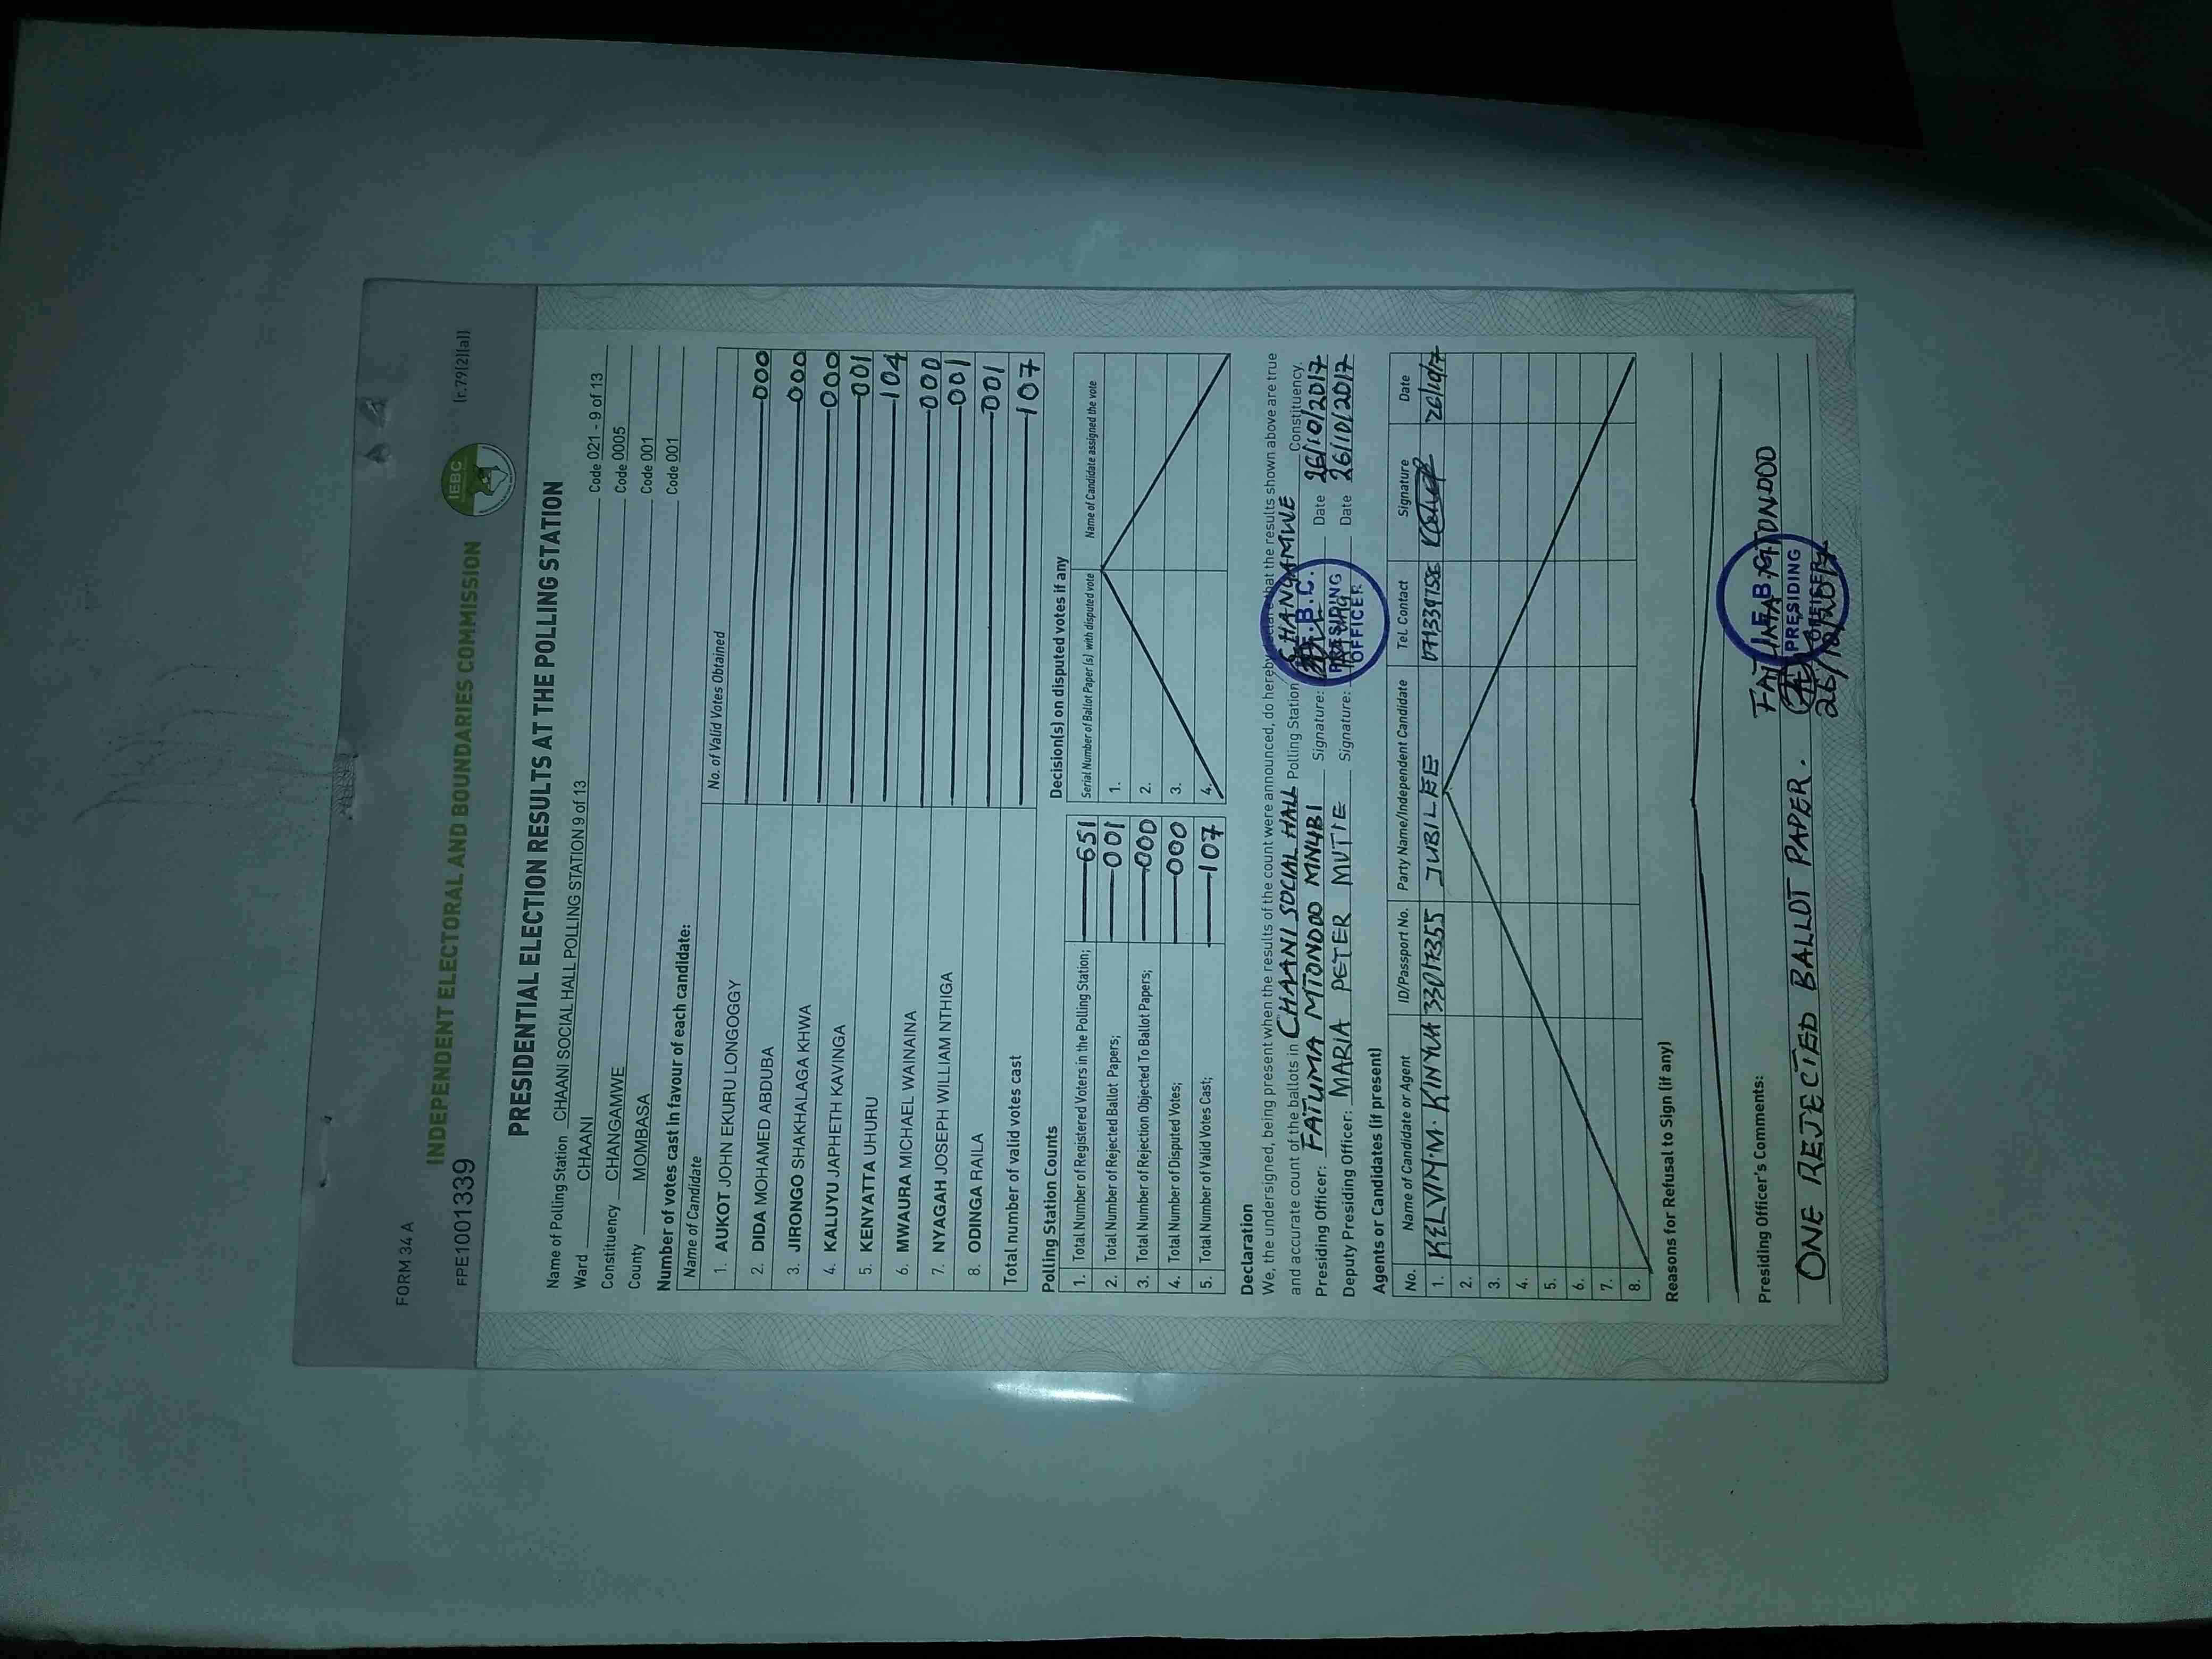 FORM 34 A
INDEPENDENT ELECTORAL AND BOUNDARIES COMMISSION
IEBC
(r.79(2)(a))
FPE1001339
PRESIDENTIAL ELECTION RESULTS AT THE POLLING STATION
Name of Polling Station CHAANI SOCIAL HALL POLLING STATION 9 of 13 Code 021 - 9 of 13
Ward CHAANI Code 0005
Constituency CHANGAMWE Code 001
County MOMBASA Code 001
Number of votes cast in favour of each candidate:
Name of Candidate No. of Valid Votes Obtained
1. AUKOT JOHN EKURU LONGOGGY 000
2. DIDA MOHAMED ABDUBA 000
3. JIRONGO SHAKHALAGA KHWA 000
4. KALUYU JAPHETH KAVINGA 001
5. KENYATTA UHURU 104
6. MWAURA MICHAEL WAINAINA 000
7. NYAGAH JOSEPH WILLIAM NTHIGA 001
8. ODINGA RAILA 001
Total number of valid votes cast 107
Polling Station Counts
1. Total Number of Registered Voters in the Polling Station; 651
2. Total Number of Rejected Ballot Papers; 001
3. Total Number of Rejection Objected To Ballot Papers; 000
4. Total Number of Disputed Votes; 000
5. Total Number of Valid Votes Cast; 107
Decision(s) on disputed votes if any
Serial Number of Ballot Paper (s) with disputed vote Name of Candidate assigned the vote
1.
2.
3.
4.
Declaration
We, the undersigned, being present when the results of the count were announced, do hereby declare that the results shown above are true
and accurate count of the ballots in CHAANI SOCIAL HALL Polling Station CHANGAMWE Constituency.
Presiding Officer: FATUMA MTONDOO MNUBI Signature: Date 26/10/2017
Deputy Presiding Officer: MARIA PETER MUTIE Signature: Date 26/10/2017
I.E.B.C.
PRESIDING
OFFICER
Agents or Candidates (if present)
No. Name of Candidate or Agent ID/Passport No. Party Name/Independent Candidate Tel. Contact Signature Date
1. KELVIM.M. KINYUA 33017355 JUBILEE 0713397586 26/10/17
2.
3.
4.
5.
6.
7.
8.
Reasons for Refusal to Sign (if any)
Presiding Officer's Comments:
ONE REJECTED BALLOT PAPER.
PRESIDING
OFFICER
26/10/2017